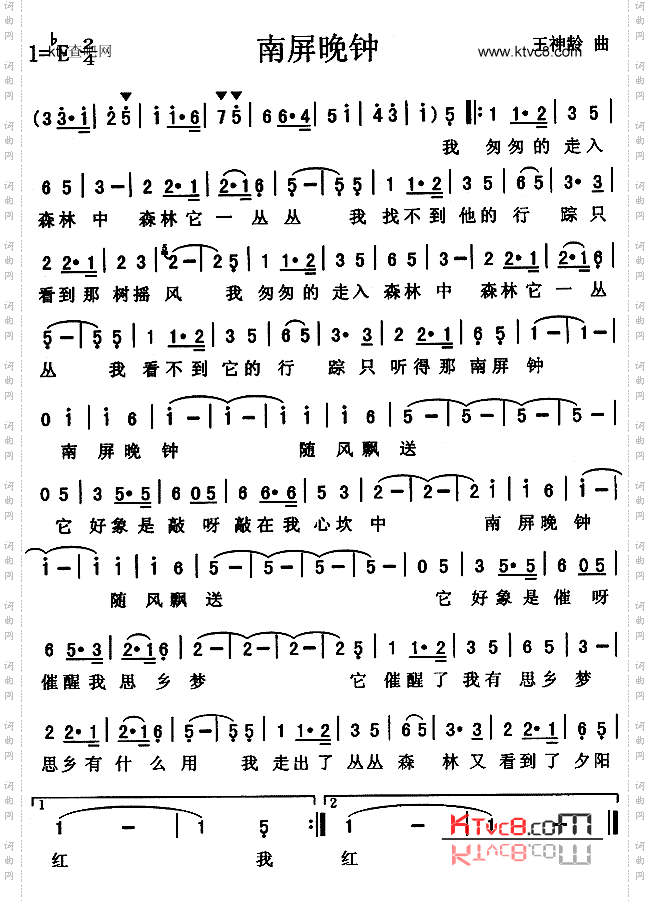 南屏晚钟
1=♭E 2/4
ktv查吧网
www.ktvc8.com
王神龄 曲
(3 3·i | 2 5 | i i·6 | 7 5 | 6 6·4 | 5 i | 4 3 | i ) 5 ‖: 1 1·2 | 3 5
我 匆匆的 走入
6 5 | 3 - | 2 2·1 | 2·1 6 | 5 - | 5 - 5 | 1 1·2 | 3 5 | 6 5 | 3· 3 |
森林中 森林它一丛丛 我 找不到他的行 踪只
2 2·1 | 2 3 | 2 - | 2 5 | 1 1·2 | 3 5 | 6 5 | 3 - | 2 2·1 | 2·1 6 |
看到那 树摇风 我 匆匆的 走入 森林中 森林它一丛
5 - | 5 5 | 1 1·2 | 3 5 | 6 5 | 3· 3 | 2 2·1 | 6 5 | 1 - | 1 - |
丛 我 看不到它的行 踪只 听得那 南屏 钟
0 i | i i | i 6 | i - | i - | i i | i 6 | 5 - | 5 - | 5 - | 5 - |
南 屏晚 钟 随 风飘 送
0 5 | 3 5·5 | 6 0 5 | 6 6·6 | 5 3 | 2 - | 2 - | 2 i | i 6 | i - |
它 好象是敲 呀 敲在我 心坎中 南 屏晚 钟
i - | i i | i 6 | 5 - | 5 - | 5 - | 5 - | 0 5 | 3 5·5 | 6 0 5 |
随 风飘 送 它 好象是催 呀
6 5·3 | 2·1 6 | 2 - | 2 - | 2 - | 2 5 | 1 1·2 | 3 5 | 6 5 | 3 - |
催醒我 思 乡梦 它 催醒了我有思乡梦
2 2·1 | 2·1 6 | 5 - | 5 5 | 1 1·2 | 3 5 | 6 5 | 3· 3 | 2 2·1 | 6 5 |
思乡有 什么用 我 走出了丛丛森 林又看到了夕阳
1 1 - | 1 5 :‖ 2 1 - | 1 - ‖
红 我 红
KTvc8.com
词曲网